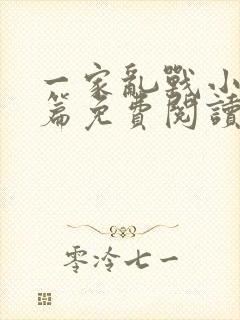 一家亂戰小
篇免費閱讀
零泠七一